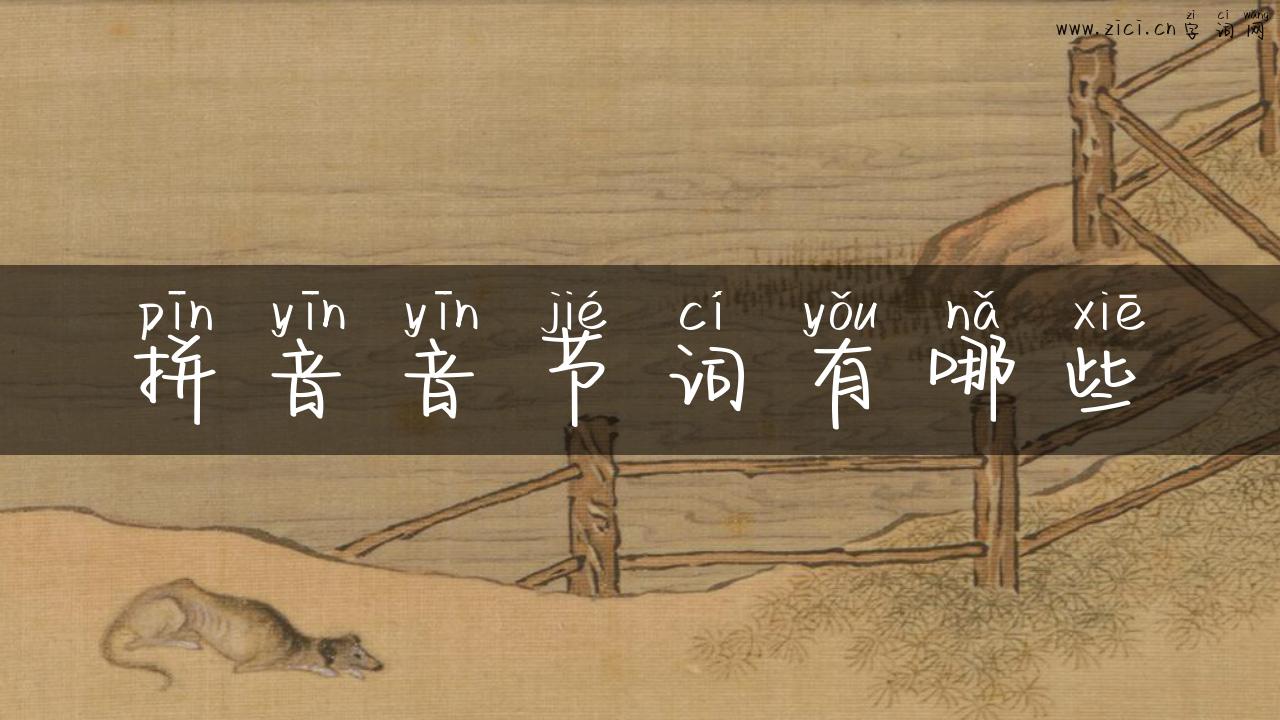 zì cí wǎng
www.zici.cn 字词网
pīn yīn yīn jié cí yǒu nǎ xiē
拼音音节词有哪些